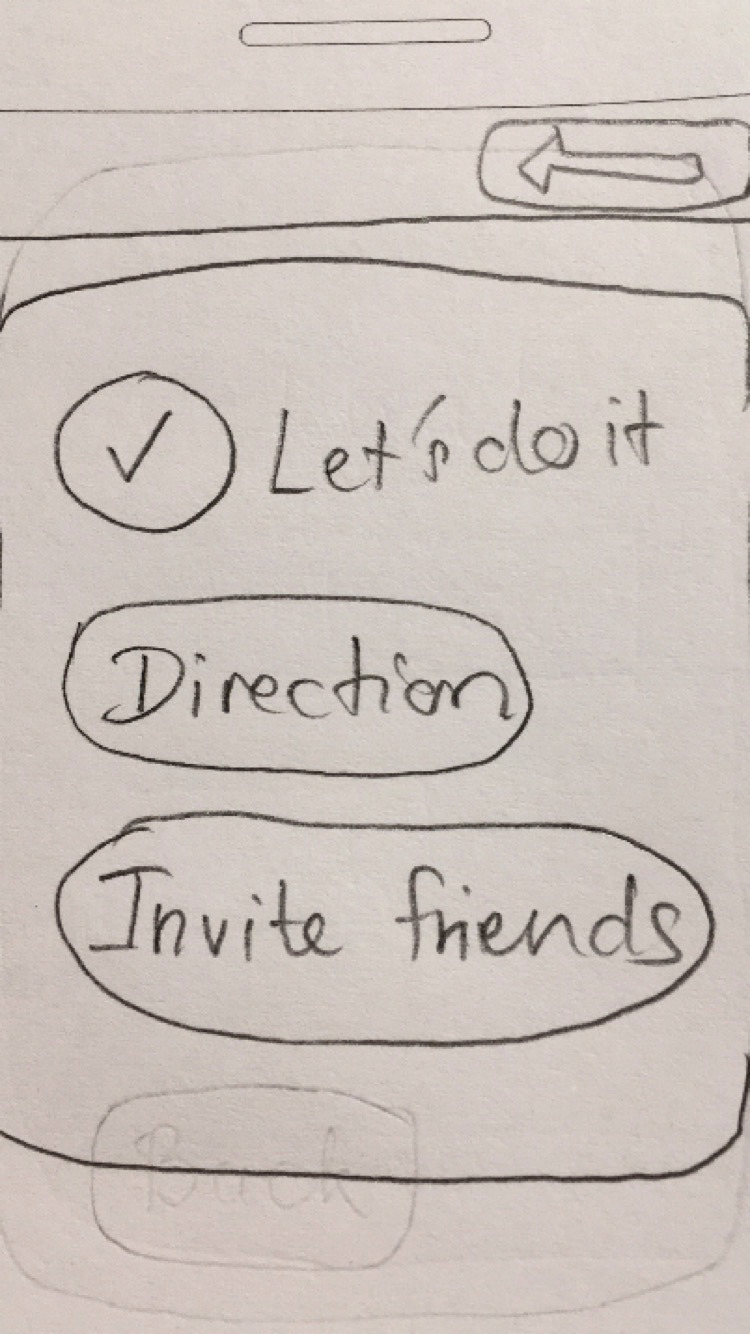 Let's do it
Direction
Invite friends
Back